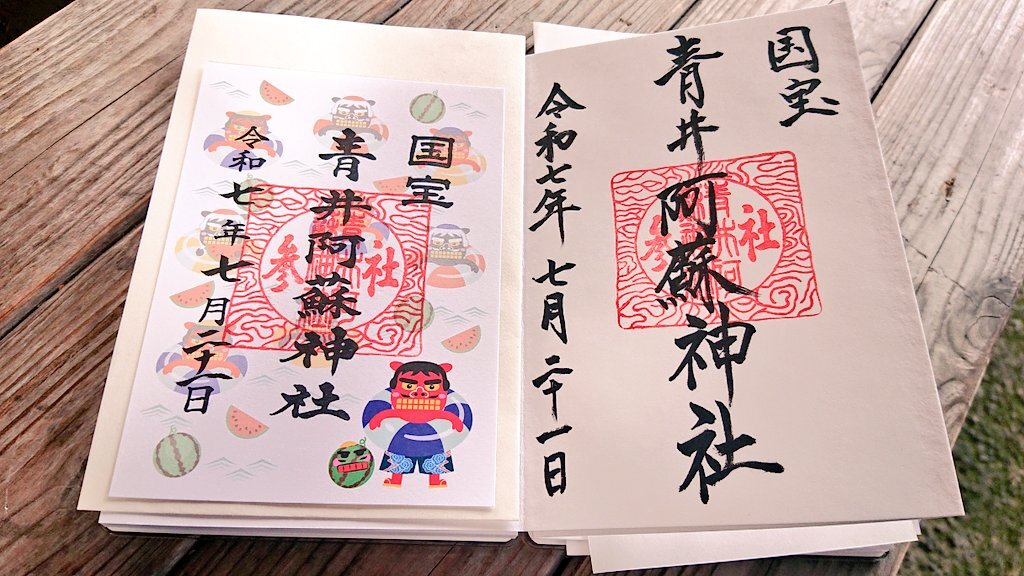 国宝
青井阿蘇神社
令和七年七月二十一日
社参
国宝
青井阿蘇神社
令和七年七月二十一日
社参